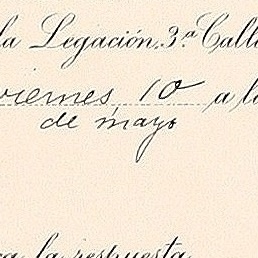 la Legación. 3.ª Calle
viernes 10 a la
de mayo
la respuesta